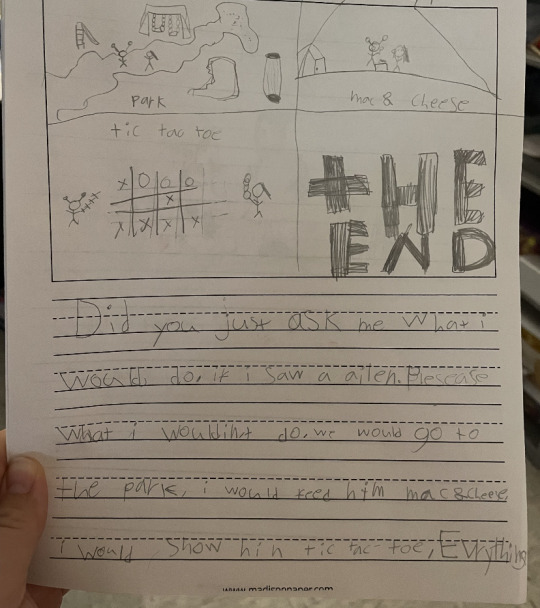 PARK
mac & cheese
tic tac toe
X O O O
X
X X X
THE
END
Did you just ask me What i
would do, if i saw a ailen. Plescase
What i wouldint do, we would go to
the park, i would feed him mac & cheese
i would show hin tic tac-toe, Evrything
www.madisonpaper.com